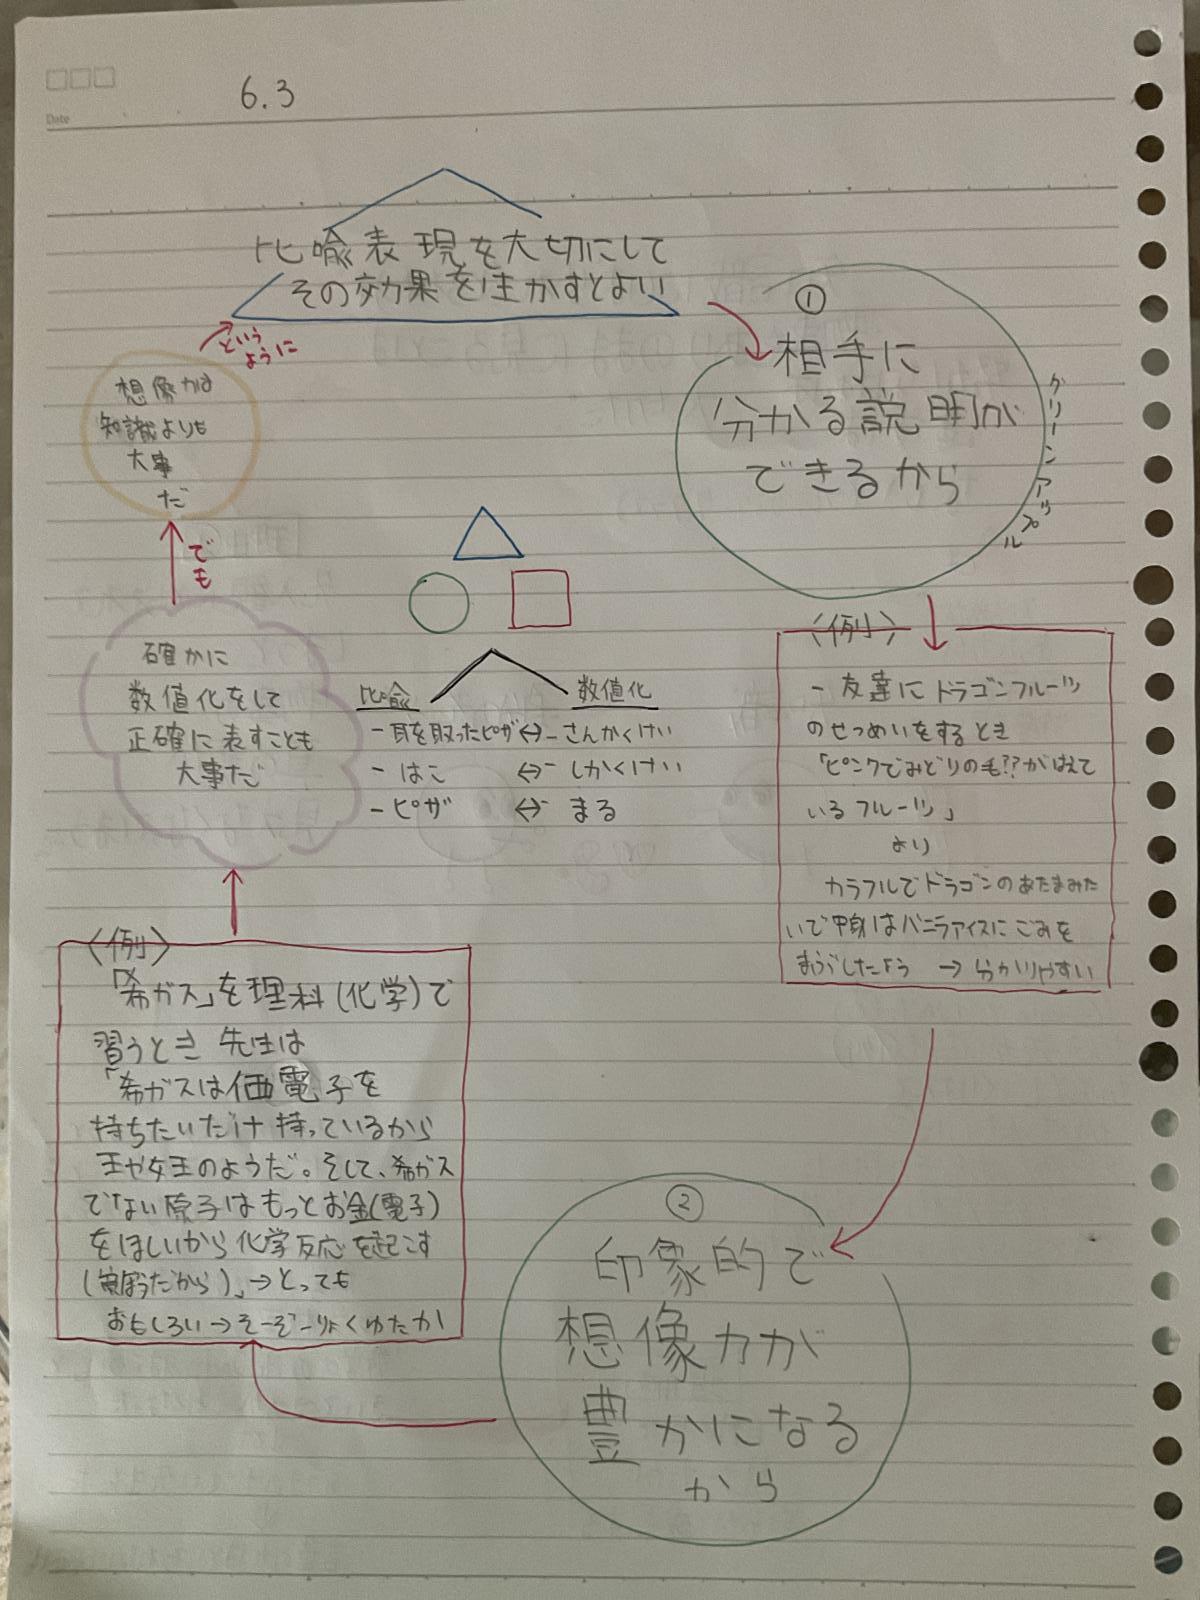 Date
6.3
比喩表現を大切にして
その効果を生かすとよい
①
相手に
分かる説明が
できるから
グリーンアップル
〈例〉
- 友達にドラゴンフルーツ
のせつめいをするとき
「ピンクでみどりの毛??がはえて
いるフルーツ」
より
カラフルでドラゴンのあたまみた
いで中身はバニラアイスにごみを
まぶしたよう → 分かりやすい
②
印象的で
想像力が
豊かになる
から
〈例〉
「希ガス」を理科(化学)で
習うとき 先生は
「希ガスは価電子を
持ちたいだけ持っているから
王や女王のようだ。そして、希ガス
でない原子はもっとお金(電子)
をほしいから化学反応を起こす
だから)」→とっても
おもしろい→そーぞーりょくゆたか
確かに
数値化をして
正確に表すことも
大事だ
でも
想像力は
知識よりも
大事
だ
という
ように
比喩
数値化
- 耳を取ったピザ ⇔ - さんかくけい
- はこ ⇔ - しかくけい
- ピザ ⇔ - まる